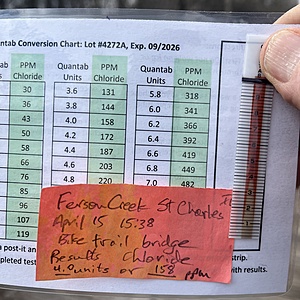 ntab Conversion Chart: Lot #4272A, Exp. 09/2026
PPM Chloride Quantab Units PPM Chloride Quantab Units PPM Chloride
30 3.6 131 5.8 318
36 3.8 144 6.0 341
43 4.0 158 6.2 366
50 4.2 172 6.4 392
58 4.4 187 6.6 419
67 4.6 203 6.8 449
76 4.8 220 7.0 482
85
96
107
119
Ferson Creek St Charles
April 15 15:38
Bike trail bridge
Results Chloride
4.0 units or 158 ppm
a post-it an strip.
pleted test with results.